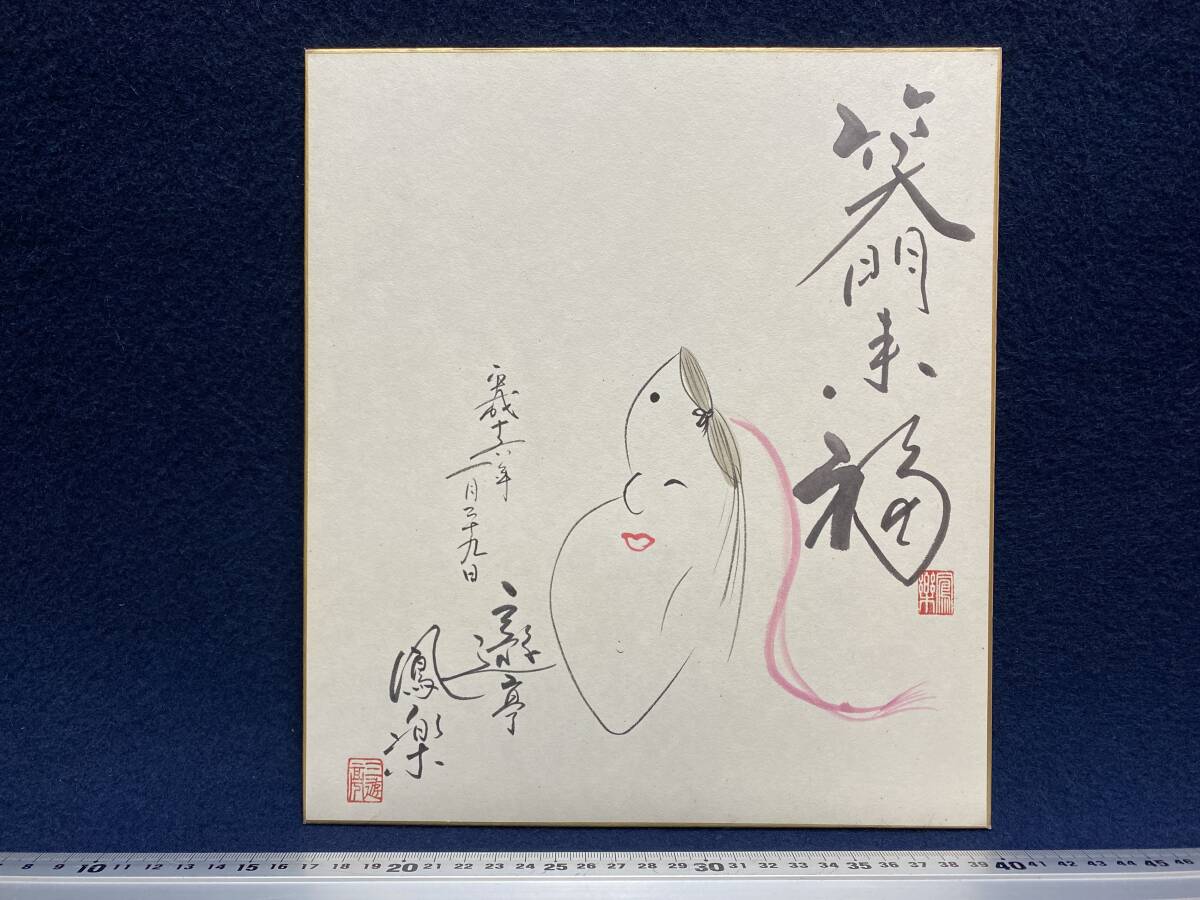 笑門来福
鳳樂
平成十六年
一月二十九日
三遊亭
鳳楽
三遊亭
8 9 10 11 12 13 14 15 16 17 18 19 20 21 22 23 24 25 26 27 28 29 30 31 32 33 34 35 36 37 38 39 40 41 42 43 44 45 46